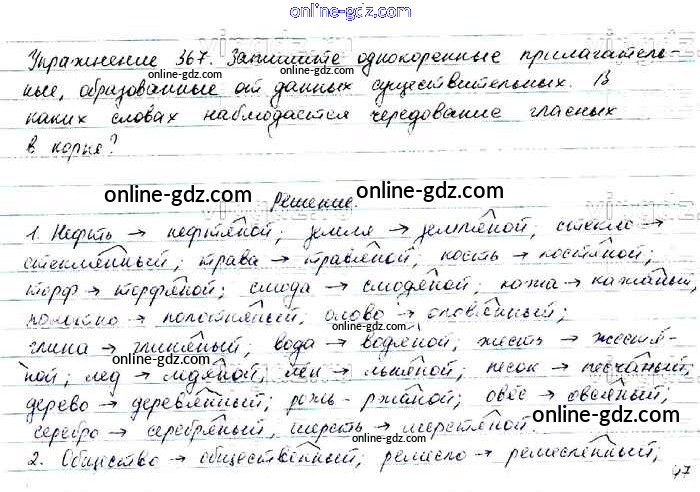 online-gdz.com
Упражнение 367. Запишите однокоренные прилагатель-
online-gdz.com
ные, образованные от данных существительных. В
каких словах наблюдается чередование гласных
в корне?
online-gdz.com
online-gdz.com
Решение.
1. Нефть → нефтяной; земля → земляной; стекло →
стеклянный; трава → травяной; кость → костяной;
торф → торфяной; смода → смодяной; кожа → кожаный;
online-gdz.com
полотно → полотняный; олово → оловянный;
online-gdz.com
глина → глиняный; вода → водяной; жесть → жестя-
online-gdz.com
ной; лед → ледяной; лён → льняной; песок → песчаный;
дерево → деревянный; рожь - ржаной; овёс → овсяный;
online-gdz.com
серебро → серебряный, шерсть → шерстяной.
online-gdz.com
2. Общество → общественный; ремесло → ремесленный;
47